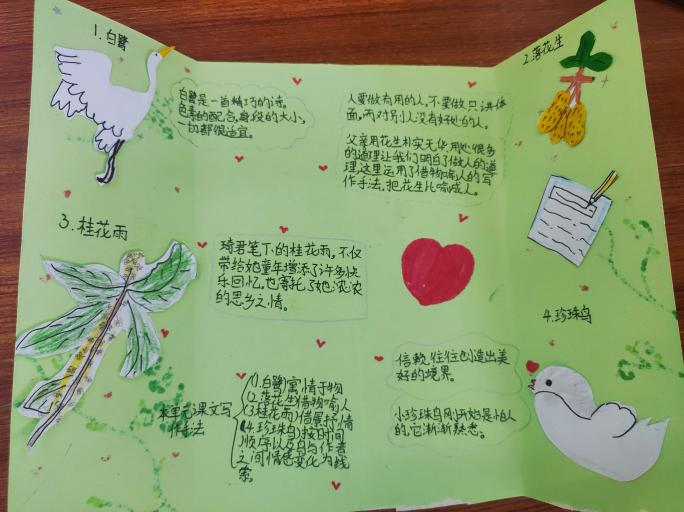 1.白鹭
白鹭是一首精巧的诗。
色素的配合，身段的大小，
一切都很适宜。
2.落花生
人要做有用的人，不要做只讲体
面，而对别人没有好处的人。
父亲用花生朴实无华，用处很多
的道理让我们明白了做人的道
理，这里运用了借物喻人的写
作手法，把花生比喻成人。
3.桂花雨
琦君笔下的桂花雨，不仅
带给她童年增添了许多快
乐回忆，也寄托了她浓浓
的思乡之情。
4.珍珠鸟
信赖，往往创造出美
好的境界。
小珍珠鸟刚开始是怕人
的，它渐渐熟悉。
本单元课文写
作手法
1.白鹭)寓情于物
2.落花生)借物喻人
(3桂花雨)借展抒情
(4.珍珠鸟)按时间
顺序以及鸟与作者
之间情感变化为线
索。